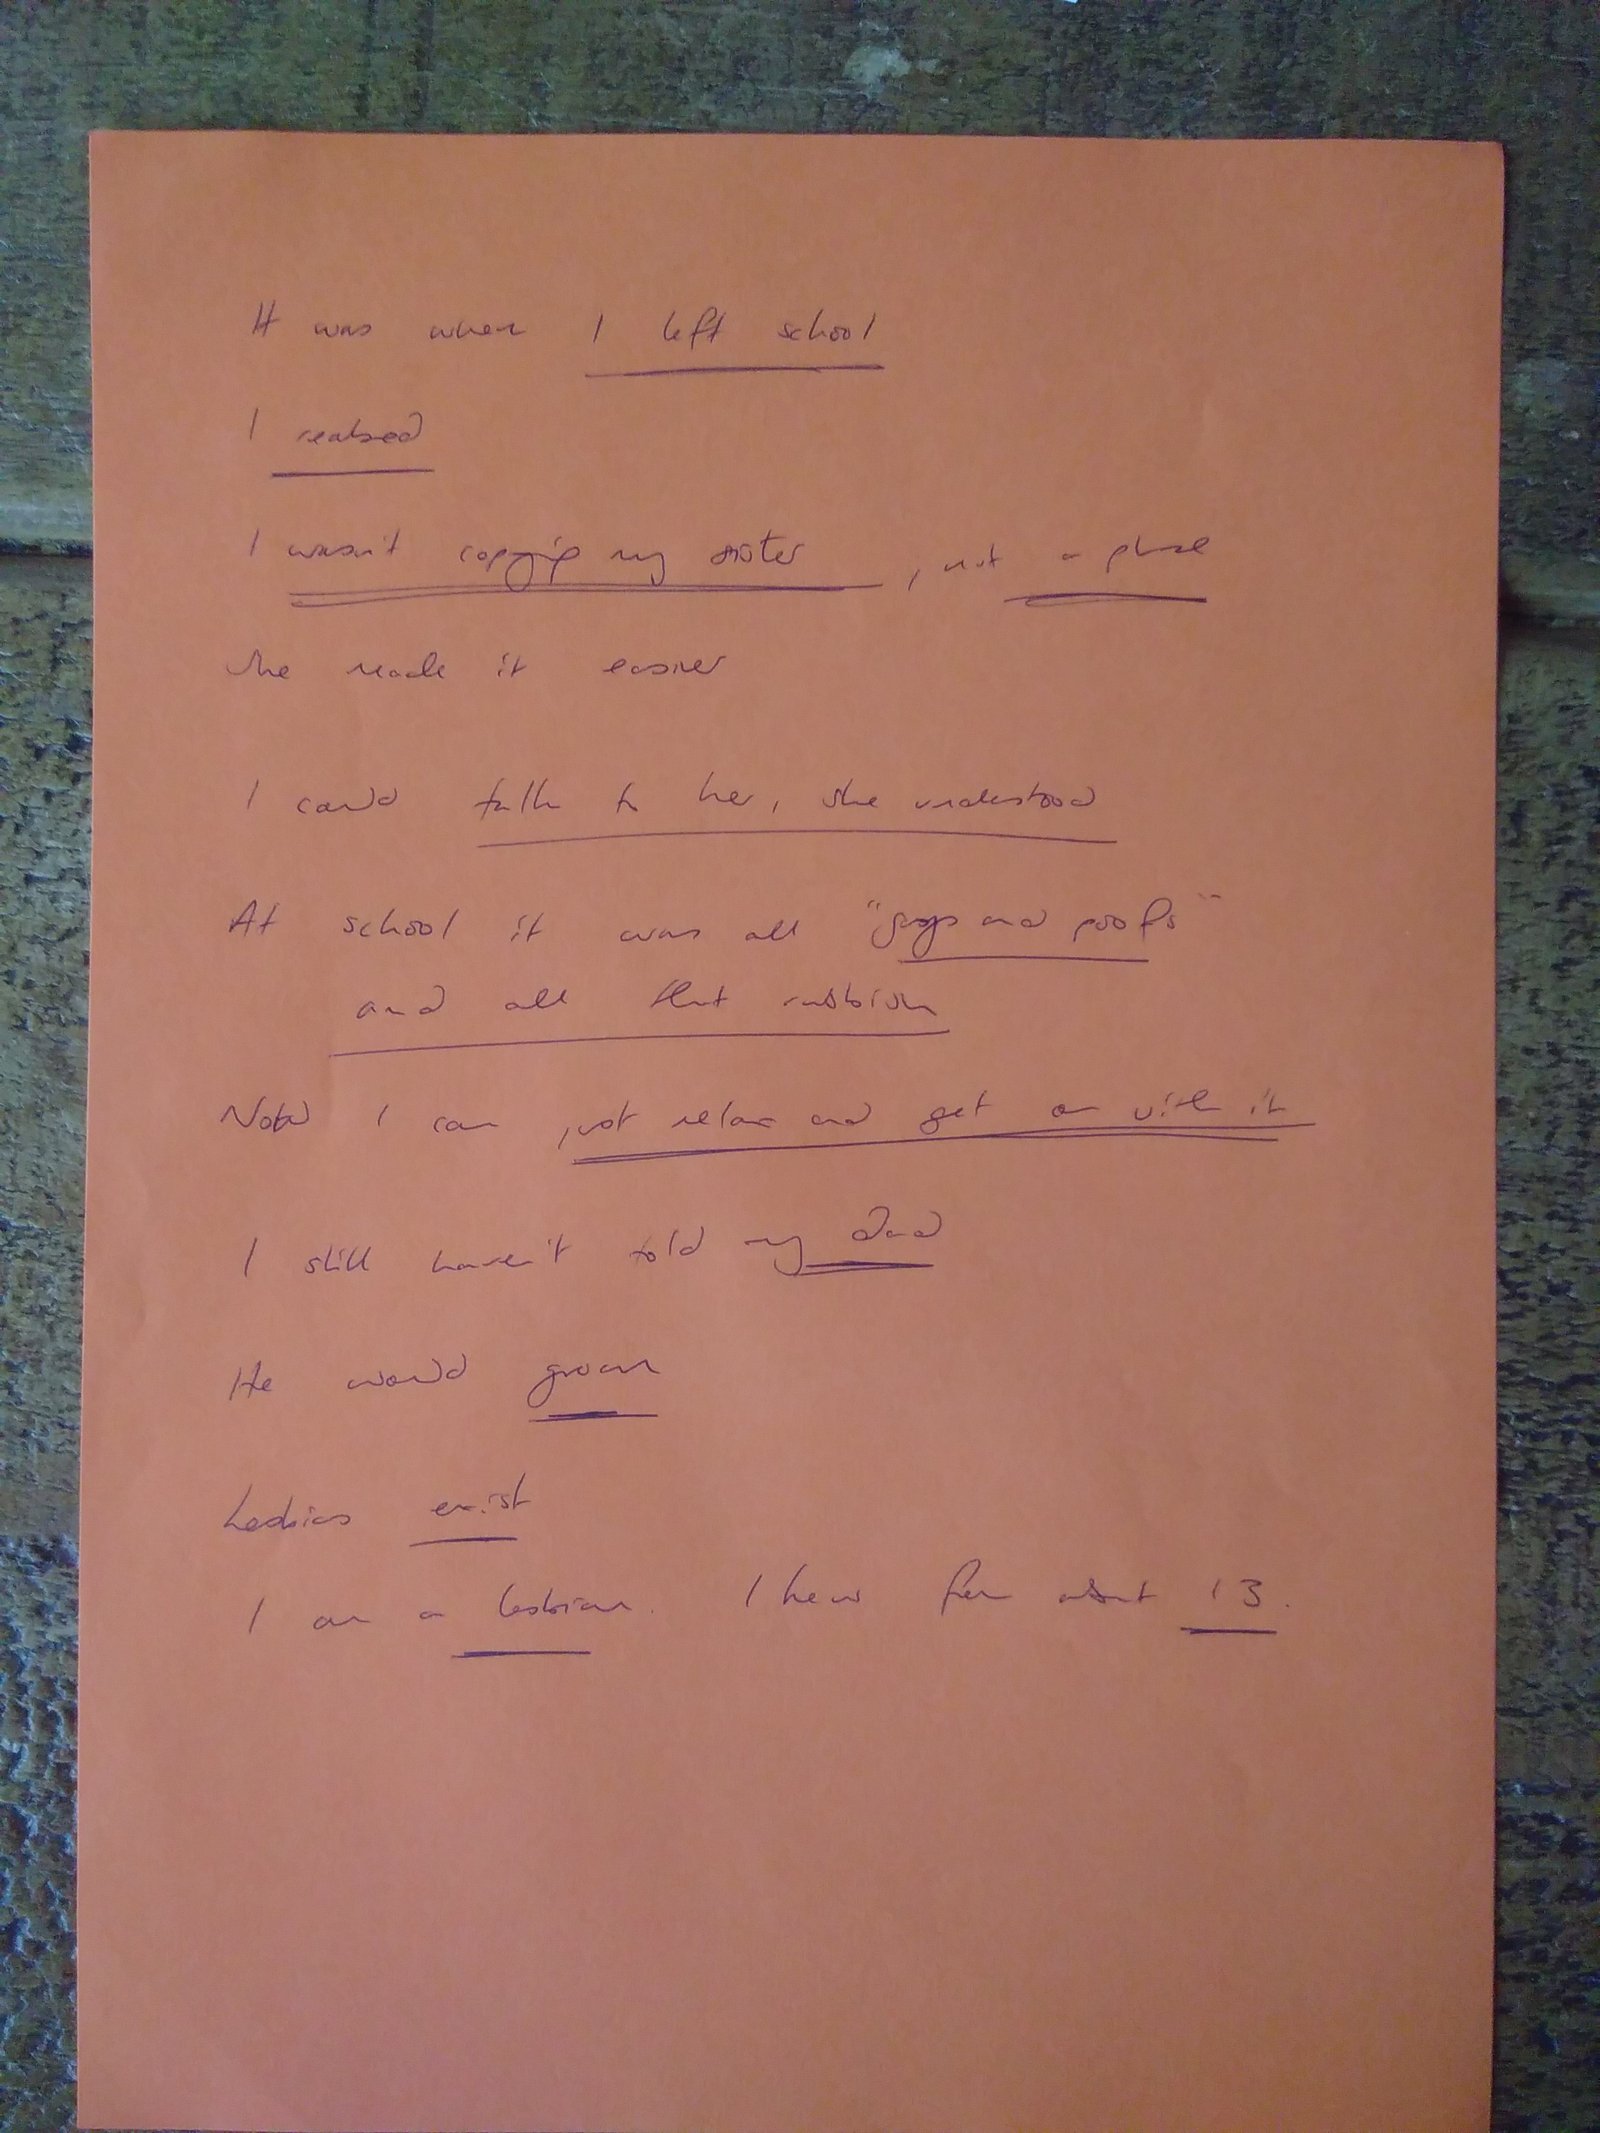 It was when I left school
I realised
I wasn't copying my sister, not a phase
She made it easier
I could talk to her, she understood
At school it was all "fags and poofs"
and all that rubbish
Now I can just relax and get on with it
I still haven't told my dad
He would groan
Lesbians exist
I am a lesbian. I knew from about 13.